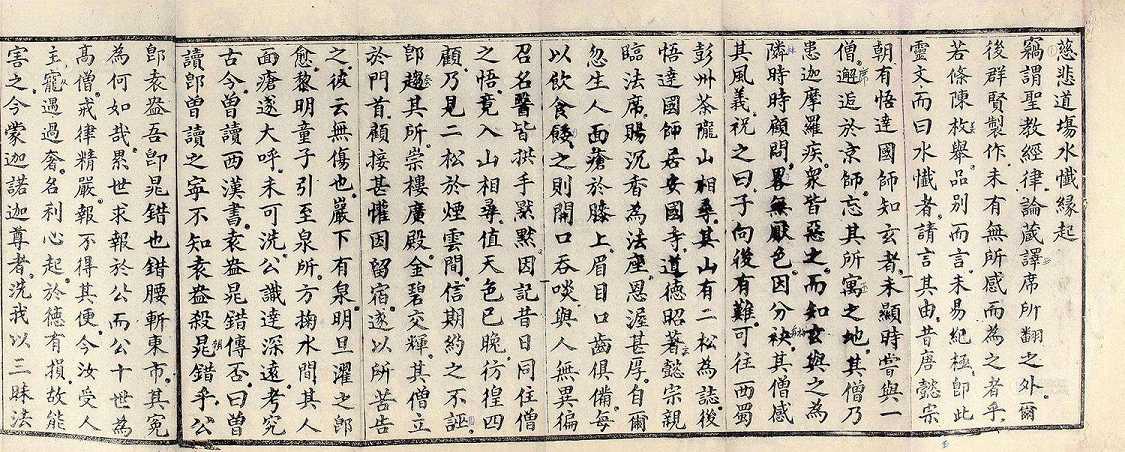 慈悲道場水懺緣起
竊謂聖教經律論藏譯席所翻之外爾
後群賢製作未有無所感而為之者乎
若條陳枚舉品別而言未易紀極即此
靈文而曰水懺者請言其由昔唐懿宗
朝有悟達國師知玄者未顯時嘗與一
僧邂逅於京師忘其所寓之地其僧乃
患迦摩羅疾衆皆惡之而知玄與之為
隣時時顧問畧無厭色因分袂其僧感
其風義祝之曰子向後有難可往西蜀
彭州茶隴山相尋其山有二松為誌後
悟達國師居安國寺道德昭著懿宗親
臨法席賜沉香為法座恩渥甚厚自爾
忽生人面瘡於膝上眉目口齒俱備每
以飲食餧之則開口吞啖與人無異徧
召名醫皆拱手默默因記昔日同住僧
之悟竟入山相尋值天色已晚彷徨四
顧乃見二松於煙雲間信期約之不誣
即趨其所崇樓廣殿金碧交輝其僧立
於門首顧接甚懽因留宿遂以所苦告
之彼云無傷也巖下有泉明旦濯之即
愈黎明童子引至泉所方掬水間其人
面瘡遂大呼未可洗公識達深遠考究
古今曾讀西漢書袁盎晁錯傳否曰曾
讀即曾讀之寧不知袁盎殺晁錯乎公
即袁盎吾即晁錯也錯腰斬東市其冤
為何如哉累世求報於公而公十世為
高僧戒律精嚴報不得其便今汝受人
主寵遇過奢名利心起於德有損故能
害之今蒙迦諾迦尊者洗我以三昧法